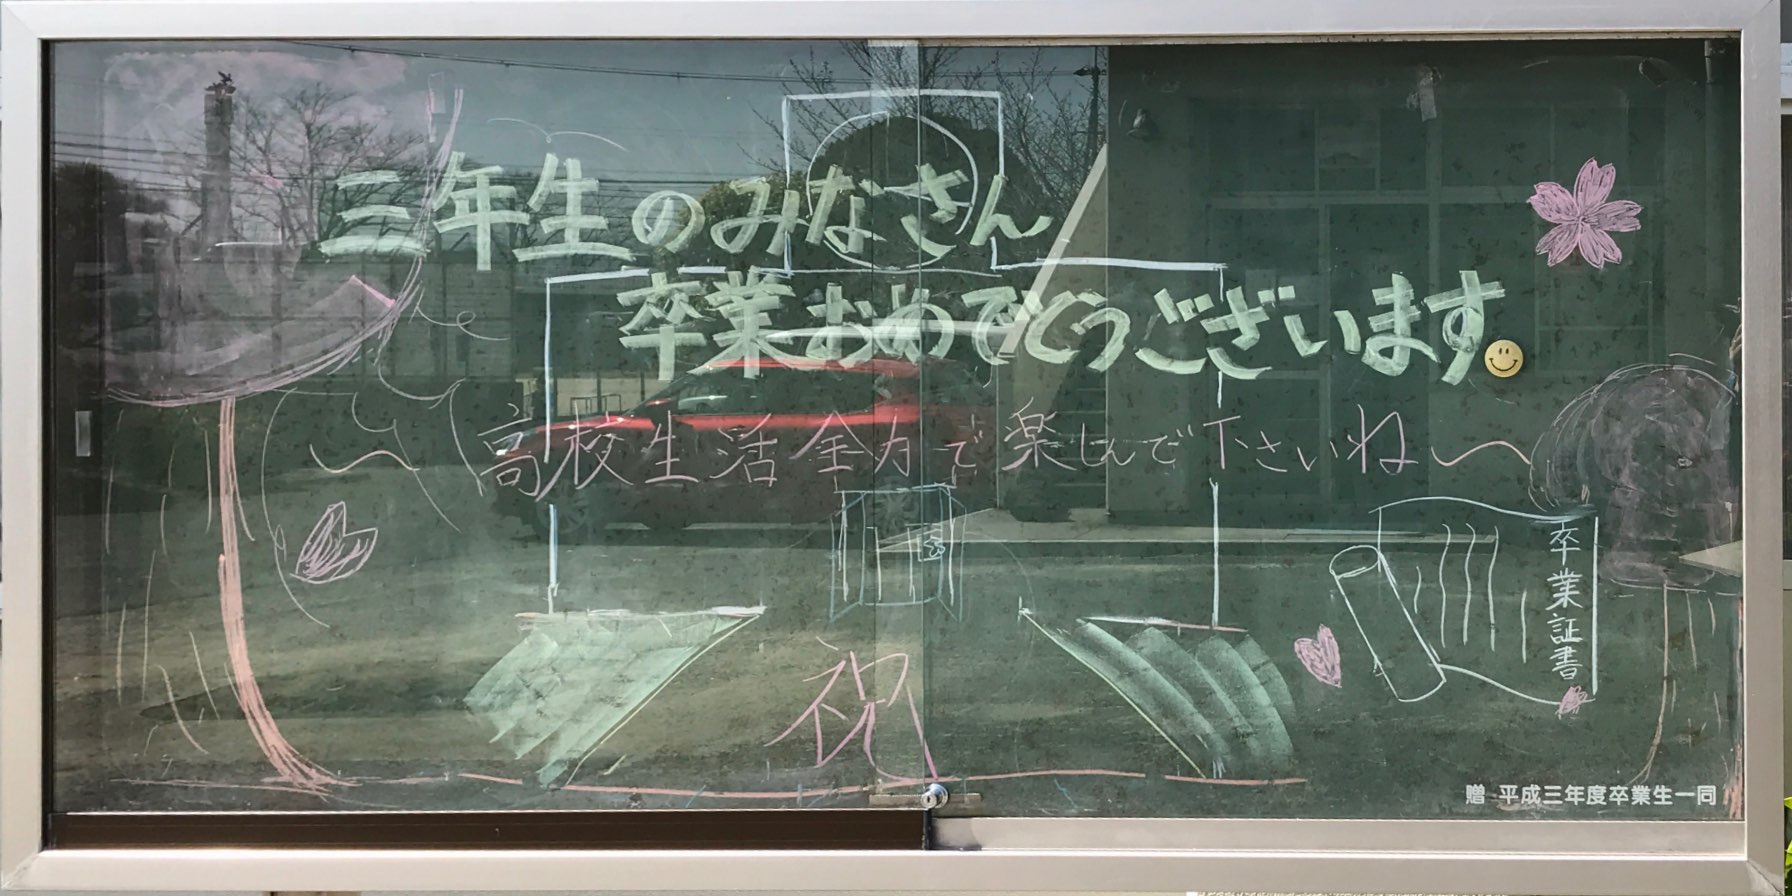 三年生のみなさん
卒業おめでとうございます
高校生活全力で楽しんで下さいね〜
卒業証書
祝
贈 平成三年度卒業生一同